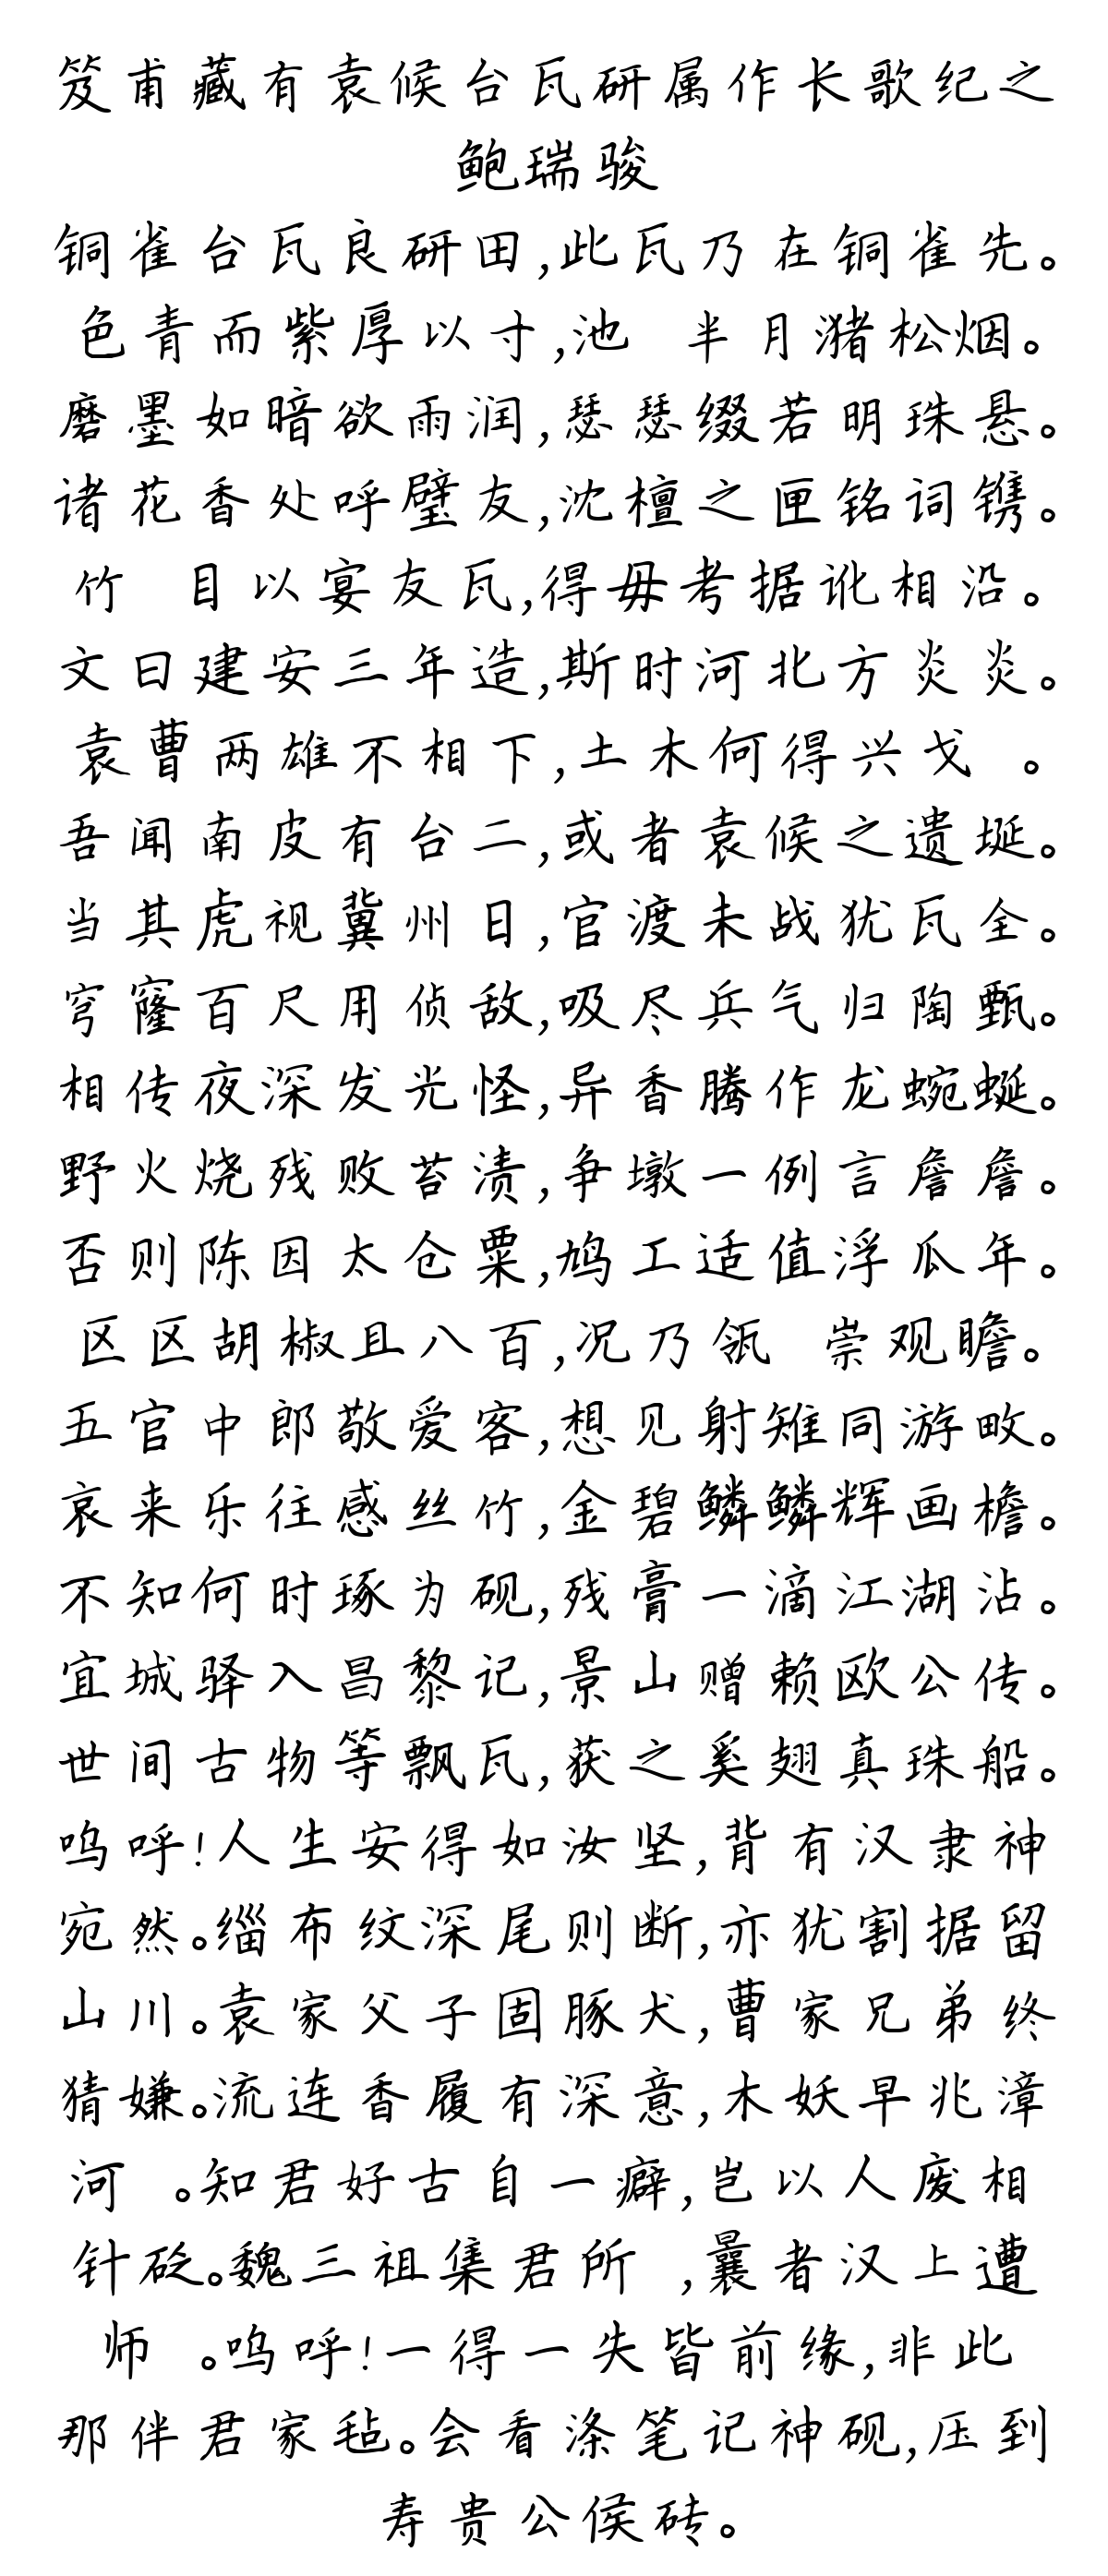 笈甫藏有袁候台瓦研属作长歌纪之
鲍瑞骏
铜雀台瓦良研田,此瓦乃在铜雀先。
色青而紫厚以寸,池 半月潴松烟。
磨墨如暗欲雨润,瑟瑟缀若明珠悬。
诸花香处呼壁友,沈檀之匣铭词镌。
竹 目以宴友瓦,得毋考据讹相沿。
文曰建安三年造,斯时河北方炎炎。
袁曹两雄不相下,土木何得兴戈 。
吾闻南皮有台二,或者袁候之遗埏。
当其虎视冀州日,官渡未战犹瓦全。
穹窿百尺用侦敌,吸尽兵气归陶甄。
相传夜深发光怪,异香腾作龙蜿蜒。
野火烧残败苔渍,争墩一例言詹詹。
否则陈因太仓粟,鸠工适值浮瓜年。
区区胡椒且八百,况乃瓴 崇观瞻。
五官中郎敬爱客,想见射雉同游畋。
哀来乐往感丝竹,金碧鳞鳞辉画檐。
不知何时琢为砚,残膏一滴江湖沾。
宜城驿入昌黎记,景山赠赖欧公传。
世间古物等飘瓦,获之奚翅真珠船。
呜呼!人生安得如汝坚,背有汉隶神
宛然。缁布纹深尾则断,亦犹割据留
山川。袁家父子固豚犬,曹家兄弟终
猜嫌。流连香履有深意,木妖早兆漳
河 。知君好古自一癖,岂以人废相
针砭。魏三祖集君所 ,曩者汉上遭
师 。呜呼!一得一失皆前缘,非此
那伴君家毡。会看涤笔记神砚,压到
寿贵公侯砖。